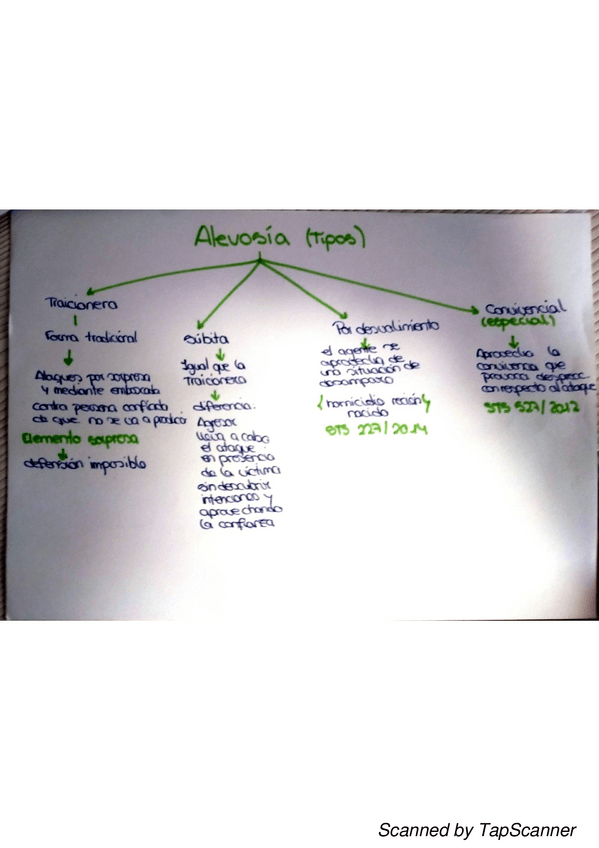 Alevosía (Tipos)
Traicionera
Forma tradicional
Ataques por sorpresa
y mediante emboscada
contra persona confiada
de que no se va a producir
Elemento sorpresa
defensión imposible
Súbita
Igual que la
Traicionera
diferencia:
Agresor
lleva a cabo
el ataque
en presencia
de la víctima
sin descubrir
intenciones y
aprovechando
la confianza
Por desvalimiento
el agente se
aprovecha de
una situación de
desamparo
homicidio recién
nacido
STS 227/2014
Convivencial
(especial)
Aprovecha la
convivencia que
provoca despreoc.
con respecto al ataque
STS 527/2012
Scanned by TapScanner